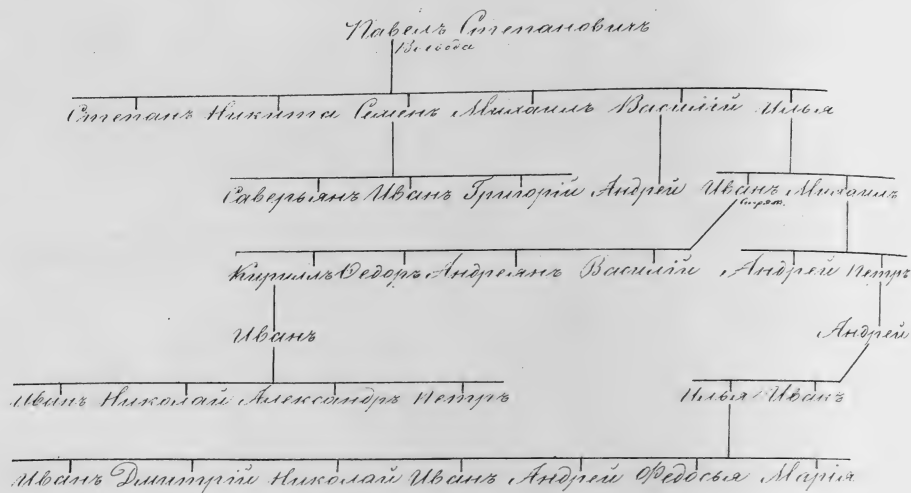 Павелъ Степановичъ
Воевода
Степанъ Никита Семенъ Михаилъ Василій Илья
Саверьянъ Иванъ Григорій Андрей Иванъ Михаилъ
стряп.
Кириллъ Ѳедоръ Андреянъ Василій Андрей Петръ
Иванъ Андрей
Иванъ Николай Александръ Петръ Илья Иванъ
Иванъ Дмитрій Николай Иванъ Андрей Ѳедосья Марія